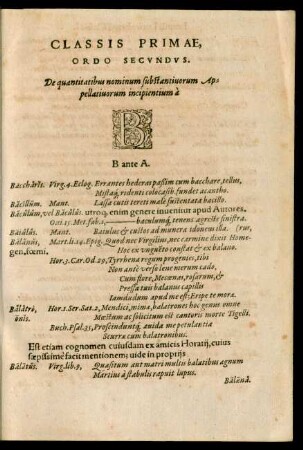 CLASSIS PRIMAE,
ORDO SECVNDVS.
De quantitatibus nominum substantiuorum Ap-
pellatiuorum incipientium à
B
B ante A.
Băcchărĭs. Virg. 4. Eclog. Errantes hederas passim cum bacchare, tellus,
Mistaq́; ridenti colocasia fundet acantho.
Băcillum. Mant. Lassa cutis tereti malè sustentata bacillo.
Băcŭlum, vel Băcŭlŭs. utroq; enim genere inuenitur apud Autores.
Oui. 15. Met. fab. baculumq́; tenens agreste sinistra.
Băiŭlŭs. Mant. Baiulus & cultos ad munera idoneus
Bălănŭs, Mart. li. 14. Epig. Quod nec Virgilius, nec carmine dixit Home-
Hoc ex unguento constat & ex balano.
Hor. 3. Car. Od. 29, Tyrrhena regum progenies, tibi
Non antè verso lene merum cado,
Cum flore, Mecœnas, rosarum, &
Pressa tuis balanus capillis
Iamdudum apud me est: Eripe te moræ.
Bălătrŏ, Hor. 1. Ser. Sat. 2, Mendici, mimæ, balatrones hoc genus omne
ōnis. Mœstum ac solicitum est cantoris morte Tigelli.
Buch. Psal. 35, Proscinduntq́; auida me petulantia
Scurræ cum balatronibus.
Est etiam cognomen cuiusdam ex amicis Horatij, cuius
sæpissimè facit mentionem; uide in proprijs
Bālātŭs. Virg. lib. 9, Quæsitum aut matri multis balatibus agnum
Martius à stabulis rapuit lupus.
Bălænă.